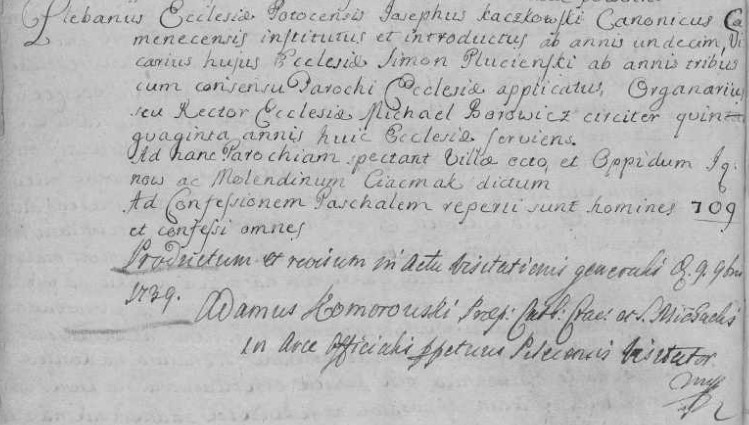 Plebanus Ecclesiæ Potocensis Josephus Kaczkowski Canonicus Ca
menecensis institutus et introductus ab annis undecim, Vi
carius hujus Ecclesiæ Simon Plucienski ab annis tribus
cum consensu Parochi Ecclesiæ applicatus, Organarius
seu Rector Ecclesiæ Michael Borowicz circiter quin
quaginta annis huic Ecclesiæ serviens.
Ad hanc Parochiam spectant Villæ octo, et Oppidum Ig.
now ac Molendinum Ciacmak dictum
Ad Confessionem Paschalem reperti sunt homines 709
et confessi omnes
Productum et revisum in Actu Visitationis generalis D. 9 9bris
1739.
Adamus Komorowski Præp: Cath: Crac: et S. Michaelis
in Arce Officialis Ppetuus Pilecensis Visitator